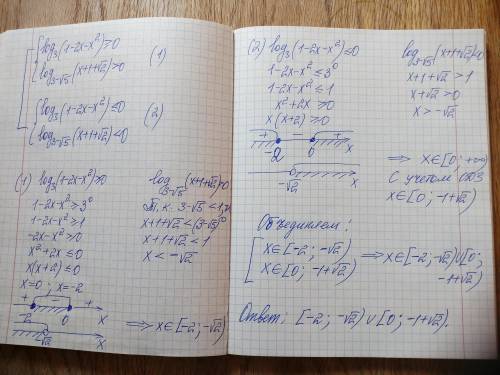 log₃(1-2x-x²) ≥ 0
log₃₋√5(x+1+√2) > 0 (1)
log₃(1-2x-x²) ≤ 0
log₃₋√5(x+1+√2) < 0 (2)
(1) log₃(1-2x-x²) ≥ 0
1-2x-x² ≥ 3⁰
1-2x-x² ≥ 1
-2x-x² ≥ 0
x²+2x ≤ 0
x(x+2) ≤ 0
x=0; x=-2
+ - +
-2 0 x
-√2 x
log₃₋√5(x+1+√2) > 0
т.к. 3-√5 < 1,
x+1+√2 < (3-√5)⁰
x+1+√2 < 1
x < -√2
⇒ x∈[-2; -√2)
(2) log₃(1-2x-x²) ≤ 0
1-2x-x² ≤ 3⁰
1-2x-x² ≤ 1
x²+2x ≥ 0
x(x+2) ≥ 0
+ - +
-2 0 x
-√2 x
log₃₋√5(x+1+√2) < 0
x+1+√2 > 1
x+√2 > 0
x > -√2
⇒ x∈[0; +∞)
С учетом ОДЗ
x∈[0; -1+√2)
Объединяем:
x∈[-2; -√2)
x∈[0; -1+√2) ⇒ x∈[-2; -√2)∪[0;
-1+√2)
Ответ: [-2; -√2)∪[0; -1+√2).